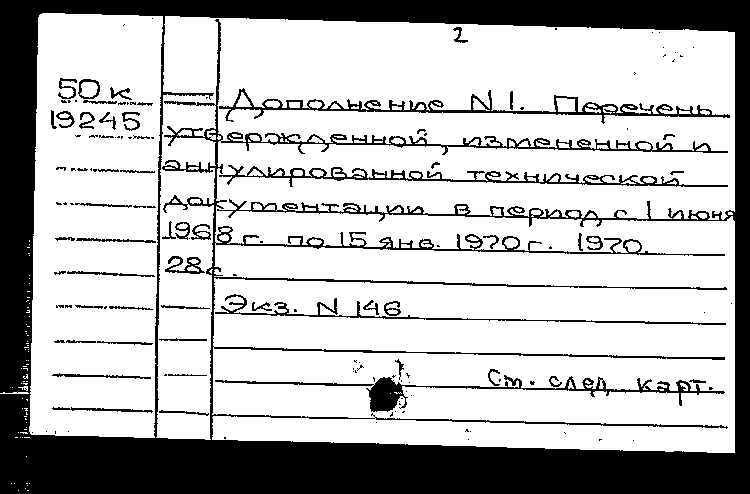 2
50к
19245
Дополнение N 1. Перечень
утвержденной, измененной и
аннулированной технической
документации в период с 1 июня
1968 г. по 15 янв. 1970 г. 1970.
28с.
Экз. N 146.
Ст. след. карт.